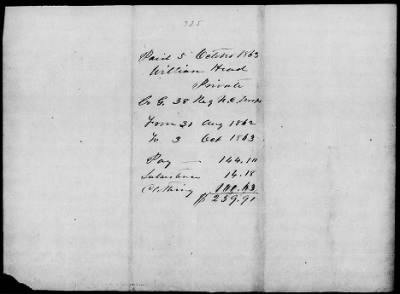 325
Paid 5 October 1863
William Head
Private
Co G. 38 Reg N.C. Troops
From 31 Aug 1862
To 3 Oct 1863
Pay — 144.10
Subsistence 14.18
Clothing
$ 259.91